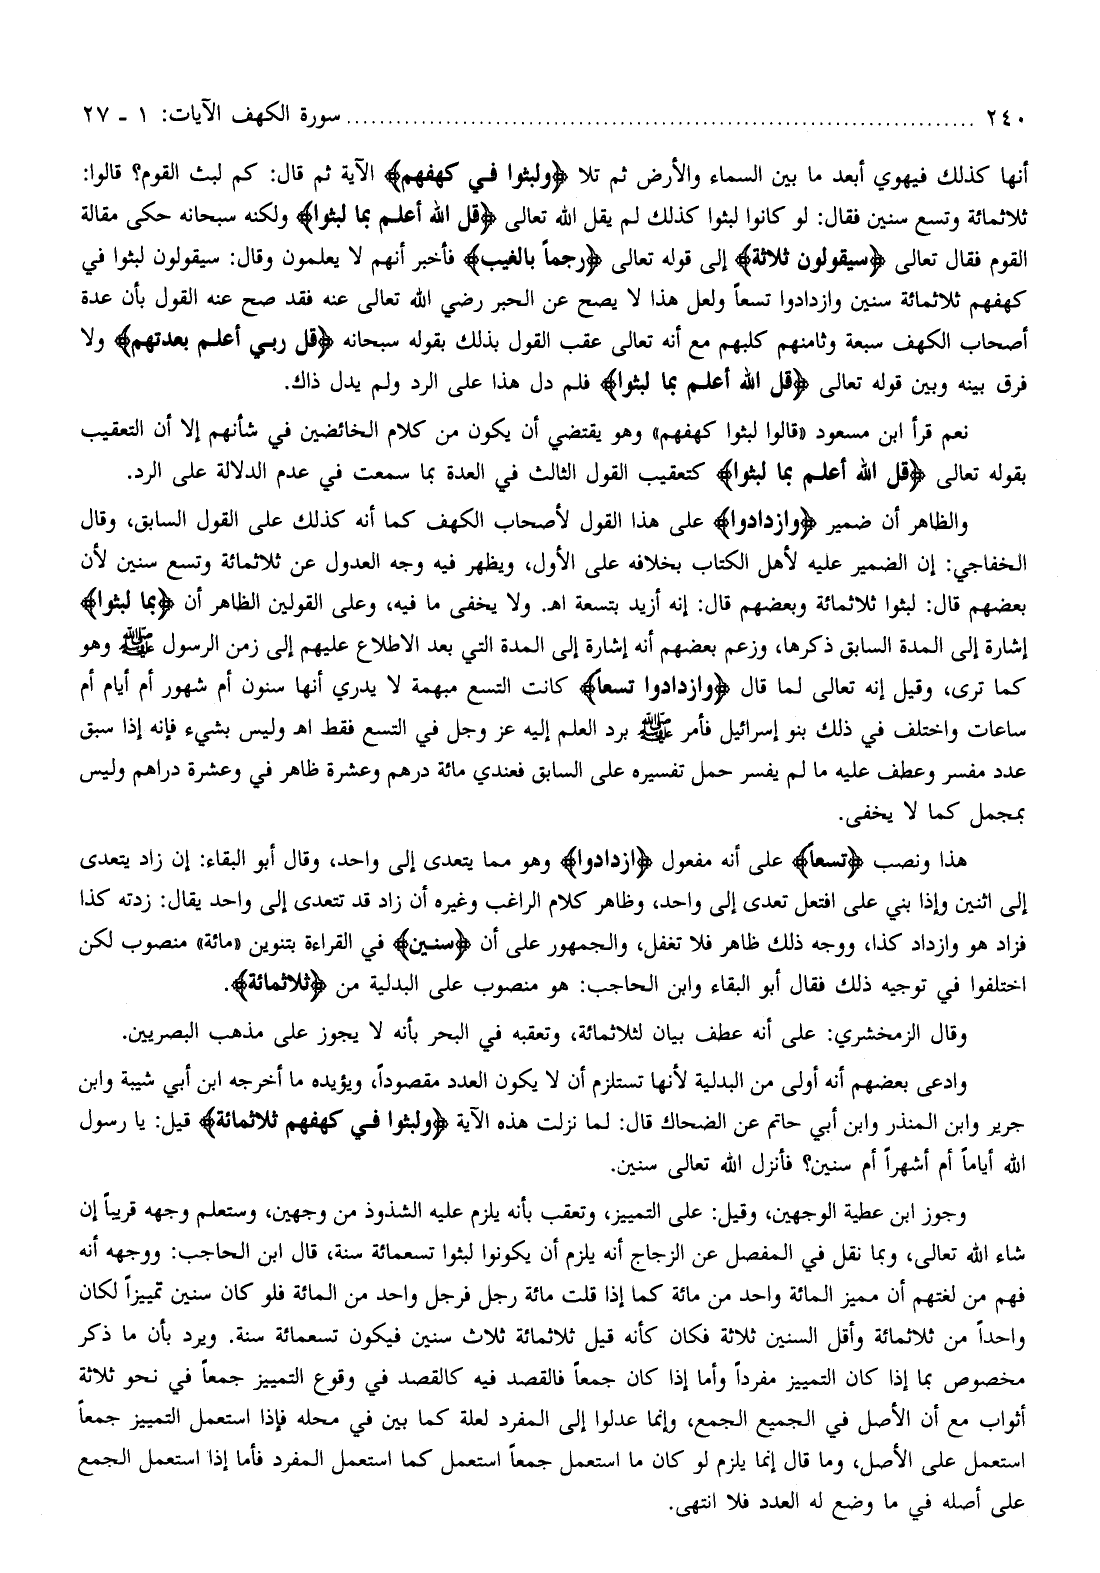 ٢٤٠ ........................................................................ سورة الكهف الآيات: ١ - ٢٧
أنها كذلك فيهوي أبعد ما بين السماء والأرض ثم تلا ﴿ولبثوا في كهفهم﴾ الآية ثم قال: كم لبث القوم؟ قالوا:
ثلاثمائة وتسع سنين فقال: لو كانوا لبثوا كذلك لم يقل الله تعالى ﴿قل الله أعلم بما لبثوا﴾ ولكنه سبحانه حكى مقالة
القوم فقال تعالى ﴿سيقولون ثلاثة﴾ إلى قوله تعالى ﴿رجماً بالغيب﴾ فأخبر أنهم لا يعلمون وقال: سيقولون لبثوا في
كهفهم ثلاثمائة سنين وازدادوا تسعاً ولعل هذا لا يصح عن الحبر رضي الله تعالى عنه فقد صح عنه القول بأن عدة
أصحاب الكهف سبعة وثامنهم كلبهم مع أنه تعالى عقب القول بذلك بقوله سبحانه ﴿قل ربي أعلم بعدتهم﴾ ولا
فرق بينه وبين قوله تعالى ﴿قل الله أعلم بما لبثوا﴾ فلم دل هذا على الرد ولم يدل ذاك.
نعم قرأ ابن مسعود «قالوا لبثوا كهفهم» وهو يقتضي أن يكون من كلام الخائضين في شأنهم إلا أن التعقيب
بقوله تعالى ﴿قل الله أعلم بما لبثوا﴾ كتعقيب القول الثالث في العدة بما سمعت في عدم الدلالة على الرد.
والظاهر أن ضمير ﴿وازدادوا﴾ على هذا القول لأصحاب الكهف كما أنه كذلك على القول السابق، وقال
الخفاجي: إن الضمير عليه لأهل الكتاب بخلافه على الأول، ويظهر فيه وجه العدول عن ثلاثمائة وتسع سنين لأن
بعضهم قال: لبثوا ثلاثمائة وبعضهم قال: إنه أزيد بتسعة اهـ. ولا يخفى ما فيه، وعلى القولين الظاهر أن ﴿بما لبثوا﴾
إشارة إلى المدة السابق ذكرها، وزعم بعضهم أنه إشارة إلى المدة التي بعد الاطلاع عليهم إلى زمن الرسول ﷺ وهو
كما ترى، وقيل إنه تعالى لما قال ﴿وازدادوا تسعاً﴾ كانت التسع مبهمة لا يدري أنها سنون أم شهور أم أيام أم
ساعات واختلف في ذلك بنو إسرائيل فأمر ﷺ برد العلم إليه عز وجل في التسع فقط اهـ وليس بشيء فإنه إذا سبق
عدد مفسر وعطف عليه ما لم يفسر حمل تفسيره على السابق فعندي مائة درهم وعشرة ظاهر في وعشرة دراهم وليس
بمجمل كما لا يخفى.
هذا ونصب ﴿تسعاً﴾ على أنه مفعول ﴿ازدادوا﴾ وهو مما يتعدى إلى واحد، وقال أبو البقاء: إن زاد يتعدى
إلى اثنين وإذا بني على افتعل تعدى إلى واحد، وظاهر كلام الراغب وغيره أن زاد قد تتعدى إلى واحد يقال: زدته كذا
فزاد هو وازداد كذا، ووجه ذلك ظاهر فلا تغفل، والجمهور على أن ﴿سنين﴾ في القراءة بتنوين «مائة» منصوب لكن
اختلفوا في توجيه ذلك فقال أبو البقاء وابن الحاجب: هو منصوب على البدلية من ﴿ثلاثمائة﴾.
وقال الزمخشري: على أنه عطف بيان لثلاثمائة، وتعقبه في البحر بأنه لا يجوز على مذهب البصريين.
وادعى بعضهم أنه أولى من البدلية لأنها تستلزم أن لا يكون العدد مقصوداً، ويؤيده ما أخرجه ابن أبي شيبة وابن
جرير وابن المنذر وابن أبي حاتم عن الضحاك قال: لما نزلت هذه الآية ﴿ولبثوا في كهفهم ثلاثمائة﴾ قيل: يا رسول
الله أياماً أم أشهراً أم سنين؟ فأنزل الله تعالى سنين.
وجوز ابن عطية الوجهين، وقيل: على التمييز، وتعقب بأنه يلزم عليه الشذوذ من وجهين، وستعلم وجهه قريباً إن
شاء الله تعالى، وبما نقل في المفصل عن الزجاج أنه يلزم أن يكونوا لبثوا تسعمائة سنة، قال ابن الحاجب: ووجهه أنه
فهم من لغتهم أن مميز المائة واحد من مائة كما إذا قلت مائة رجل فرجل واحد من المائة فلو كان سنين تمييزاً لكان
واحداً من ثلاثمائة وأقل السنين ثلاثة فكان كأنه قيل ثلاثمائة ثلاث سنين فيكون تسعمائة سنة. ويرد بأن ما ذكر
مخصوص بما إذا كان التمييز مفرداً وأما إذا كان جمعاً فالقصد فيه كالقصد في وقوع التمييز جمعاً في نحو ثلاثة
أثواب مع أن الأصل في الجميع الجمع، وإنما عدلوا إلى المفرد لعلة كما بين في محله فإذا استعمل التمييز جمعاً
استعمل على الأصل، وما قال إنما يلزم لو كان ما استعمل جمعاً استعمل كما استعمل المفرد فأما إذا استعمل الجمع
على أصله في ما وضع له العدد فلا انتهى.